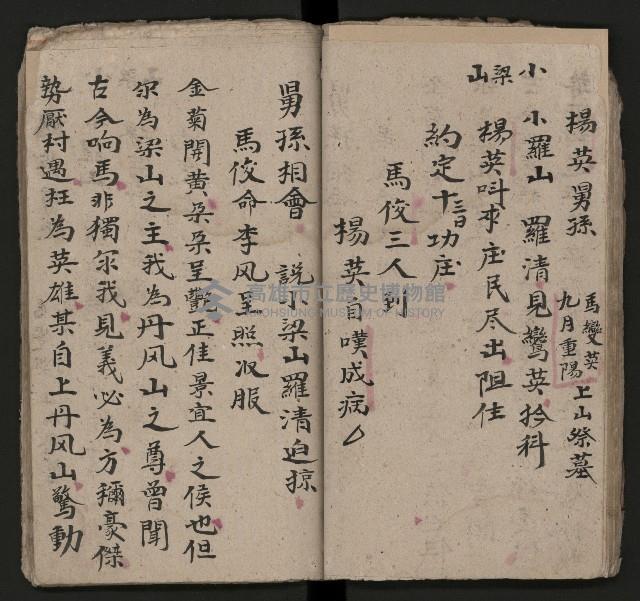 楊英舅孫 馬鸞英 九月重陽 上山祭墓
小羅山 羅清見鸞英抢科
小梁山
楊英叫李庄民尽出阻住
約定十三日功庄
馬俊三人到
楊英自嘆成病
舅孫相會 說到梁山羅清迫掠
馬俊命李风呈照収服
金菊開黃朶朶呈艷正佳景宜人之侯也但
尔為梁山之主我為丹风山之尊曾聞
古今响馬非獨尔我見義必為方稱豪傑
勢厭村遇抂為英雄某自上丹风山驚動
高雄市立歷史博物館
KAOHSIUNG MUSEUM OF HISTORY